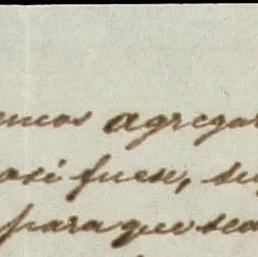 emos agregar
asi fuese, su
para que sea